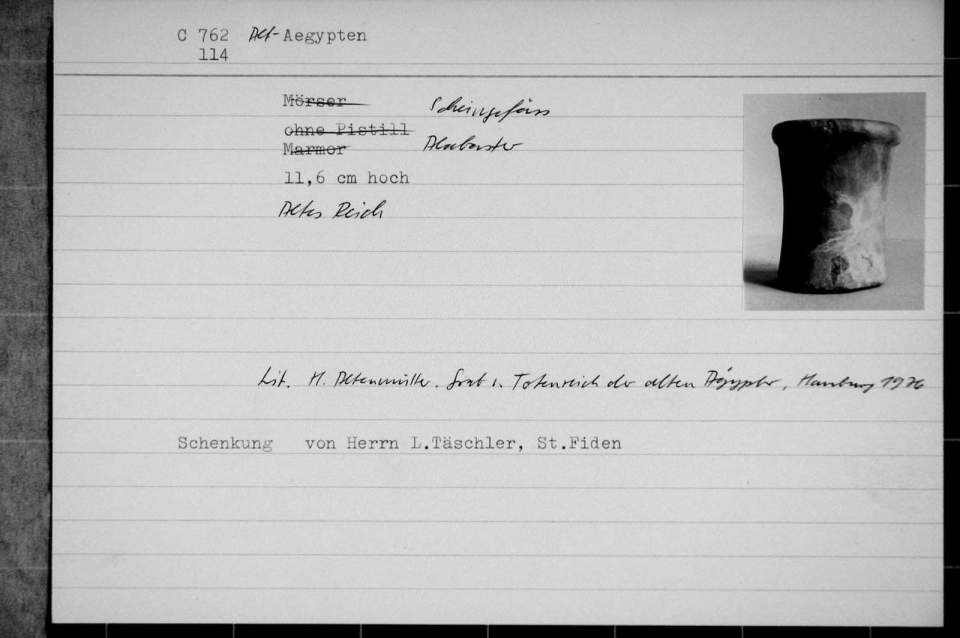 C 762 Alt-Aegypten
114
Mörser Scheingefäss
ohne Pistill
Marmor Alabaster
11,6 cm hoch
Altes Reich
Lit. H. Altenmüller. Grab u. Totenreich der alten Ägypter, Hamburg 1976
Schenkung von Herrn L.Täschler, St.Fiden